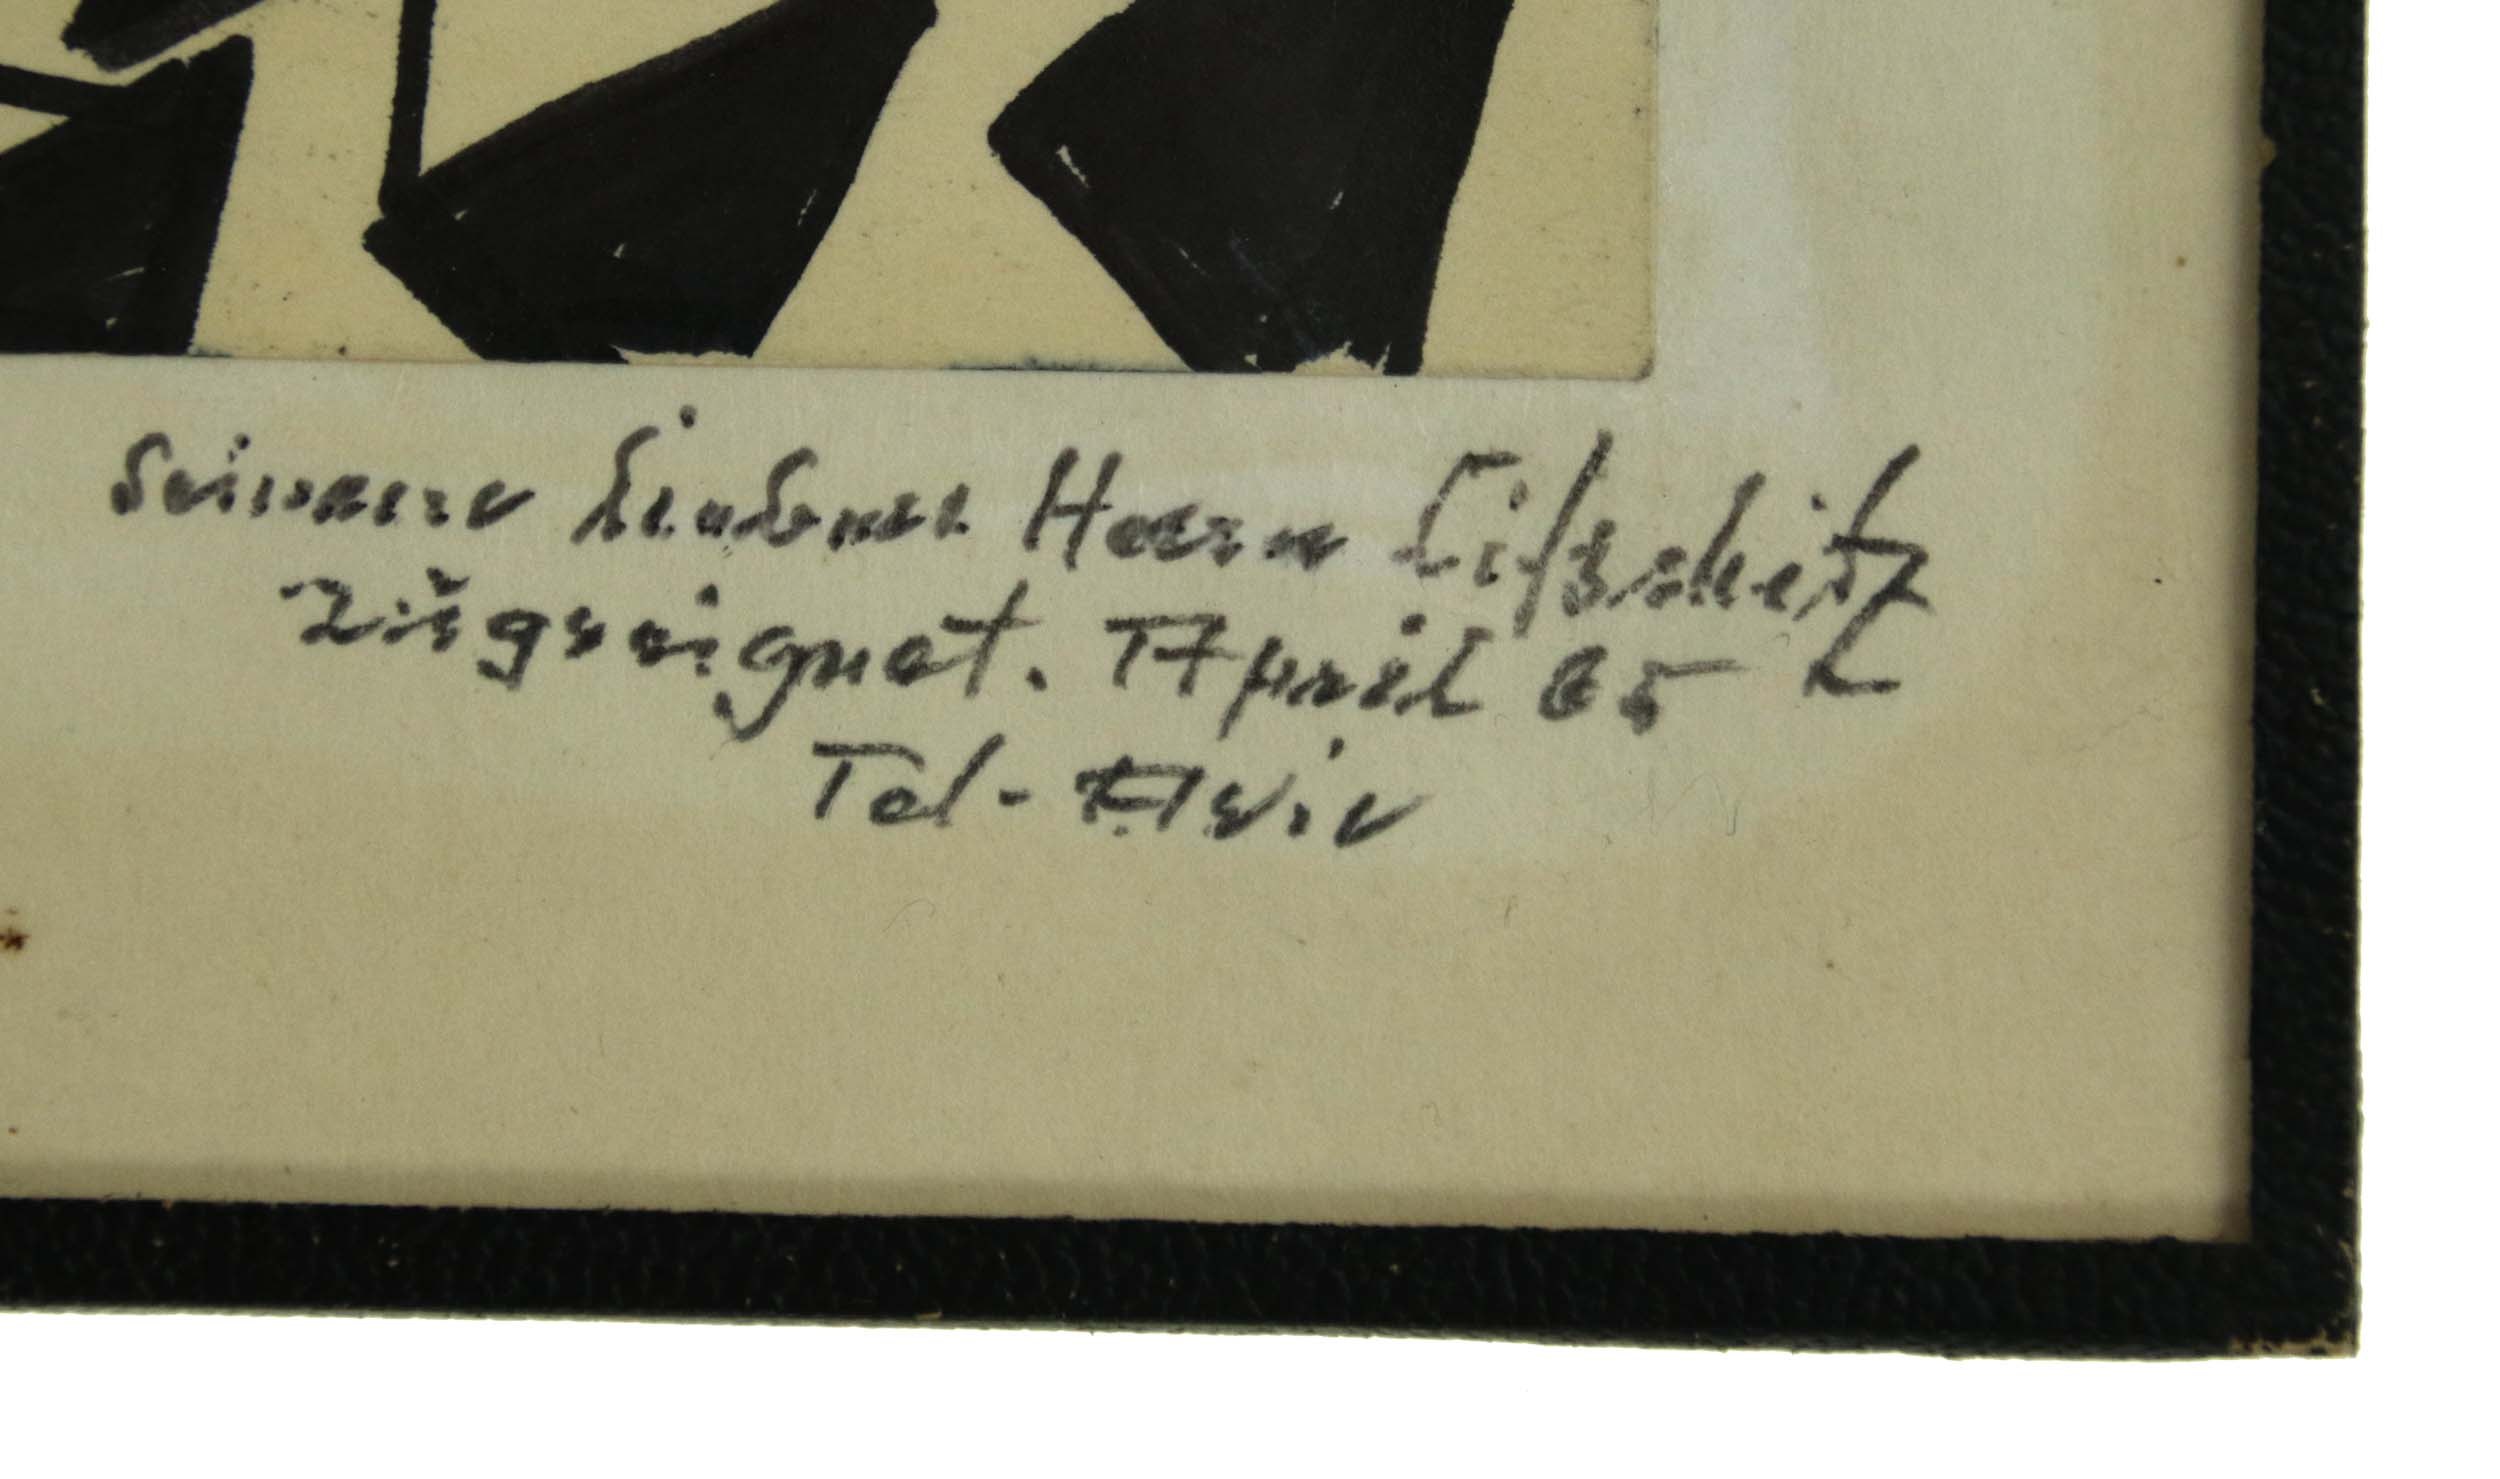 Seinem lieben Herrn Lifschitz
zugeeignet. April 65
Tel-Aviv